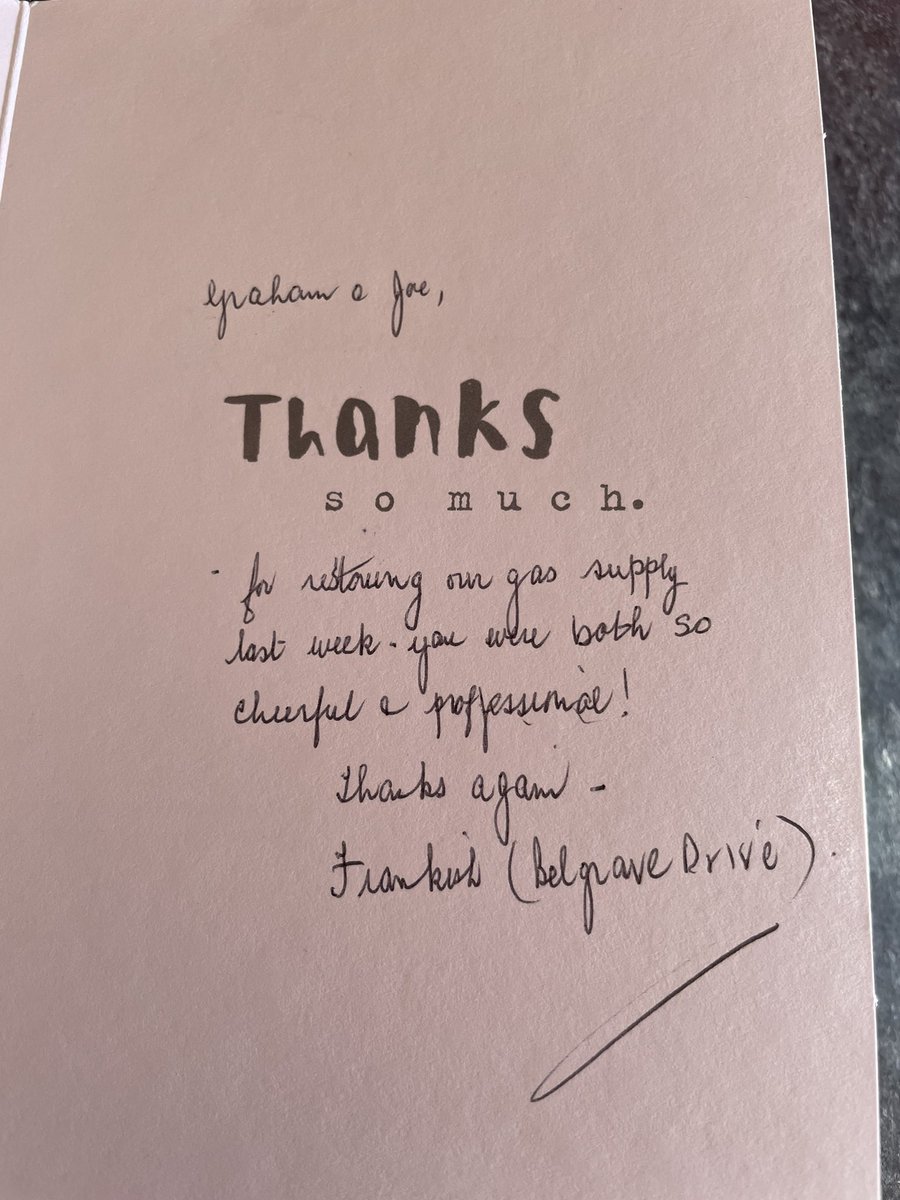 Graham & Joe,
Thanks
so much.
- for restoring our gas supply
last week - you were both so
cheerful & proffessional!
Thanks again -
Frankish (Belgrave Drive).